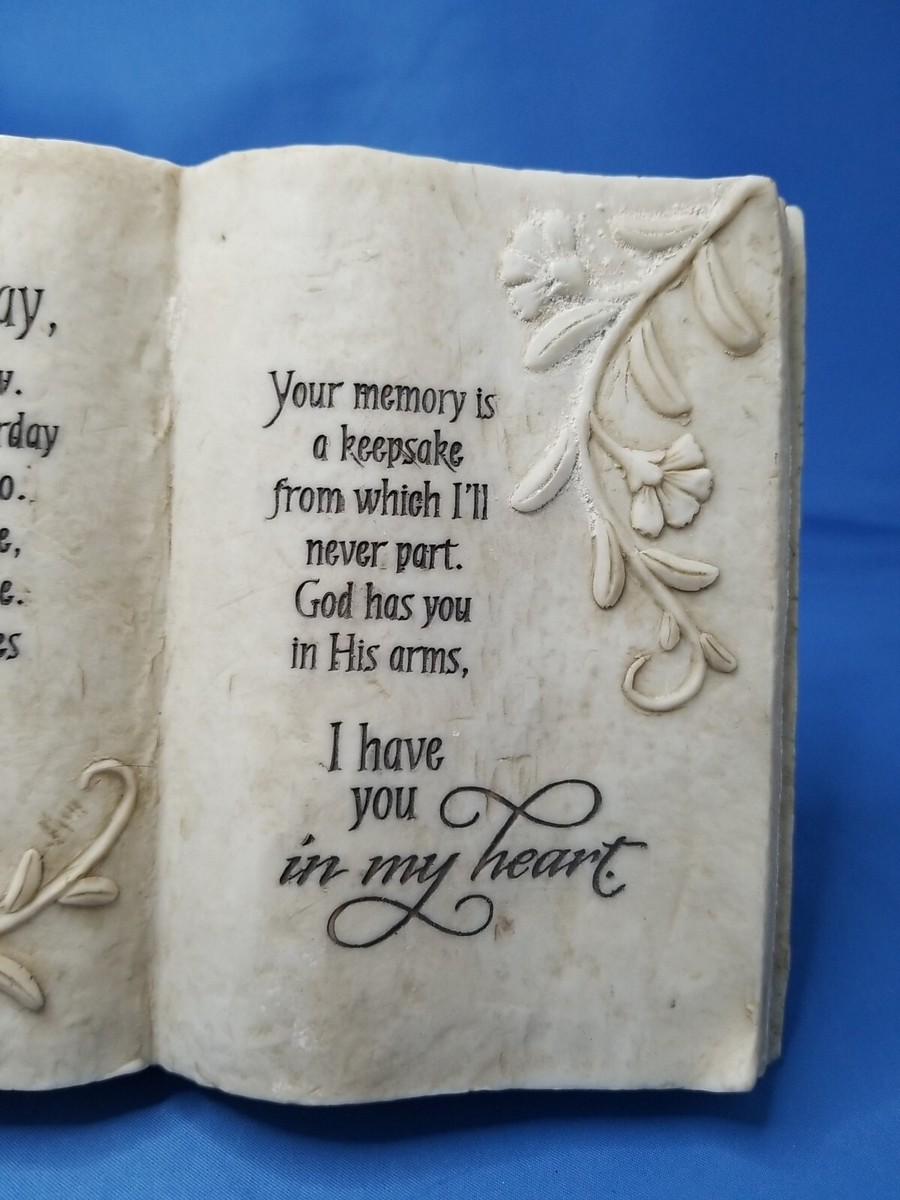 Your memory is
a keepsake
from which I'll
never part.
God has you
in His arms,
I have
you
in my heart.